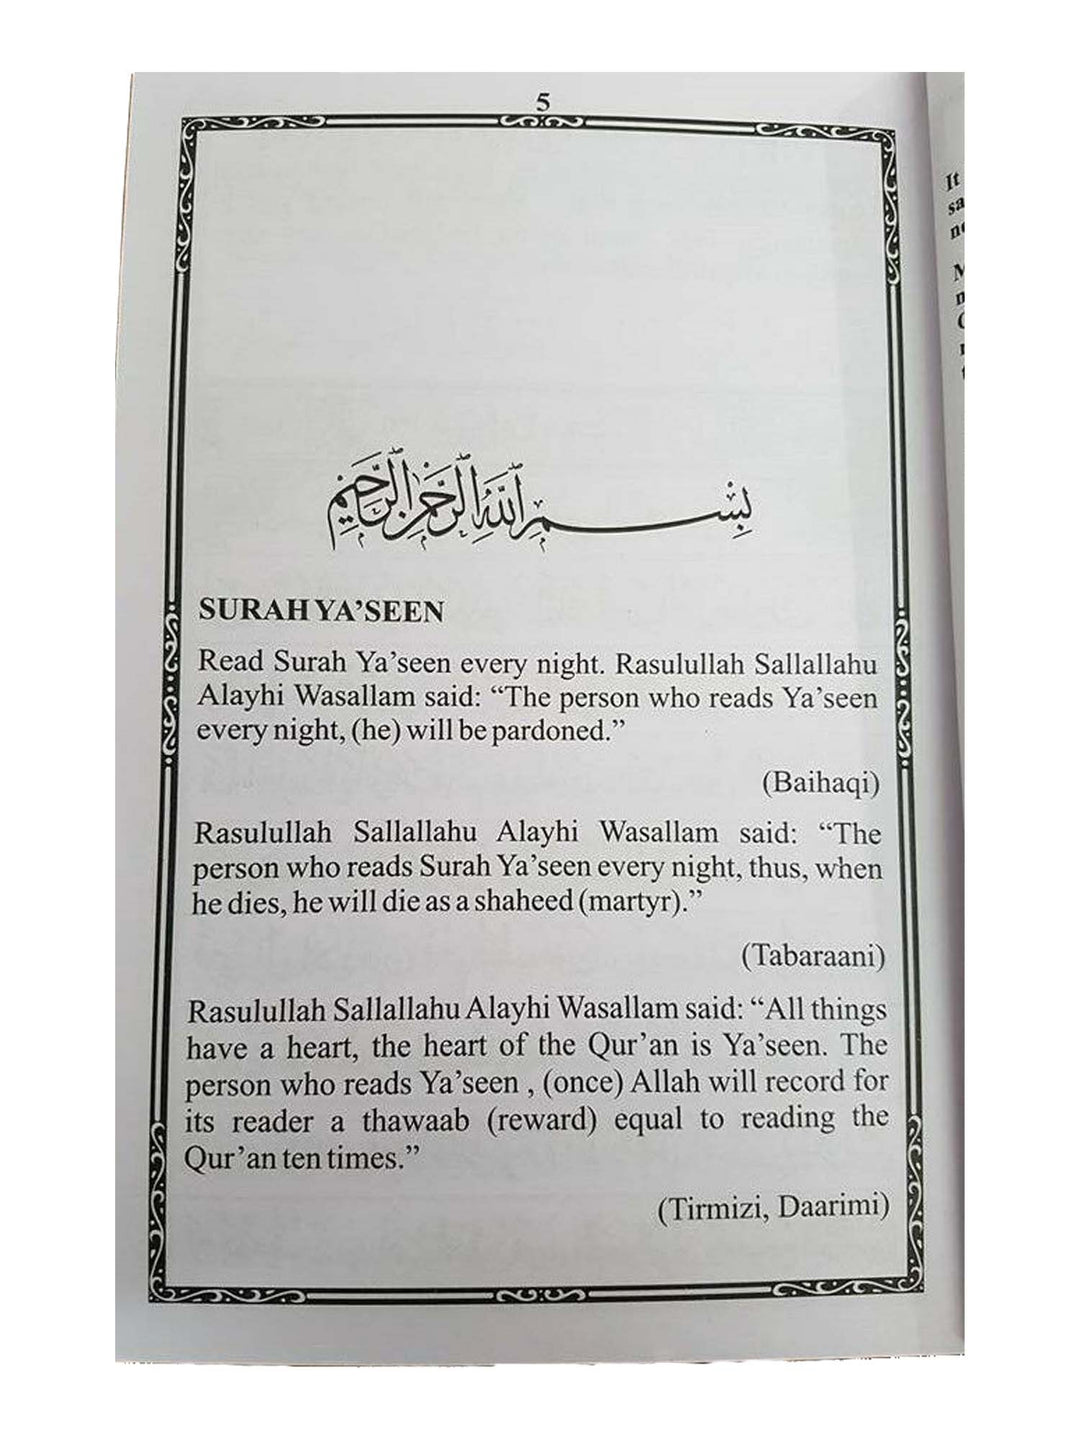 5
بِسْمِ اللَّهِ الرَّحْمَٰنِ الرَّحِيمِ
SURAH YA’SEEN
Read Surah Ya’seen every night. Rasulullah Sallallahu
Alayhi Wasallam said: “The person who reads Ya’seen
every night, (he) will be pardoned.”
(Baihaqi)
Rasulullah Sallallahu Alayhi Wasallam said: “The
person who reads Surah Ya’seen every night, thus, when
he dies, he will die as a shaheed (martyr).”
(Tabaraani)
Rasulullah Sallallahu Alayhi Wasallam said: “All things
have a heart, the heart of the Qur’an is Ya’seen. The
person who reads Ya’seen , (once) Allah will record for
its reader a thawaab (reward) equal to reading the
Qur’an ten times.”
(Tirmizi, Daarimi)
It